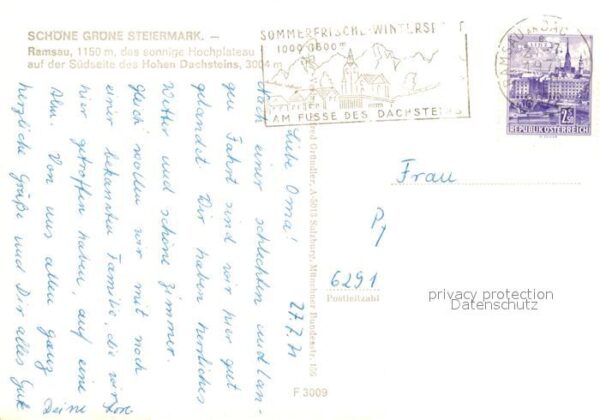 SCHÖNE GRÜNE STEIERMARK. —
Ramsau, 1150 m, das sonnige Hochplateau
auf der Südseite des Hohen Dachsteins, 3004 m
SOMMERFRISCHE-WINTERSP
1000 1600 m
AM FUSSE DES DACHSTEINS
RAMSAU
LINZ
2.50
REPUBLIK ÖSTERREICH
27.7.71
Liebe Oma!
Nach einer schlechten und lan-
gen Fahrt sind wir hier gut
gelandet. Wir haben herrliches
Wetter und schöne Zimmer.
Gleich wollen wir mit noch
einer bekannten Familie, die wir
hier getroffen haben, auf eine
Alm. Von uns allen ganz
herzliche Grüße und Dir alles Gute
Deine
Gründler, A-5013 Salzburg, Münchner Bundesstr. 155
Frau
6291
Postleitzahl
privacy protection
Datenschutz
F 3009